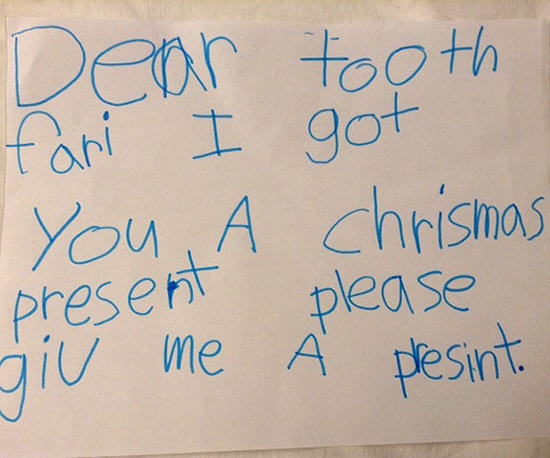 Dear tooth
fari I got
You A chrismas
present please
giv me A presint.